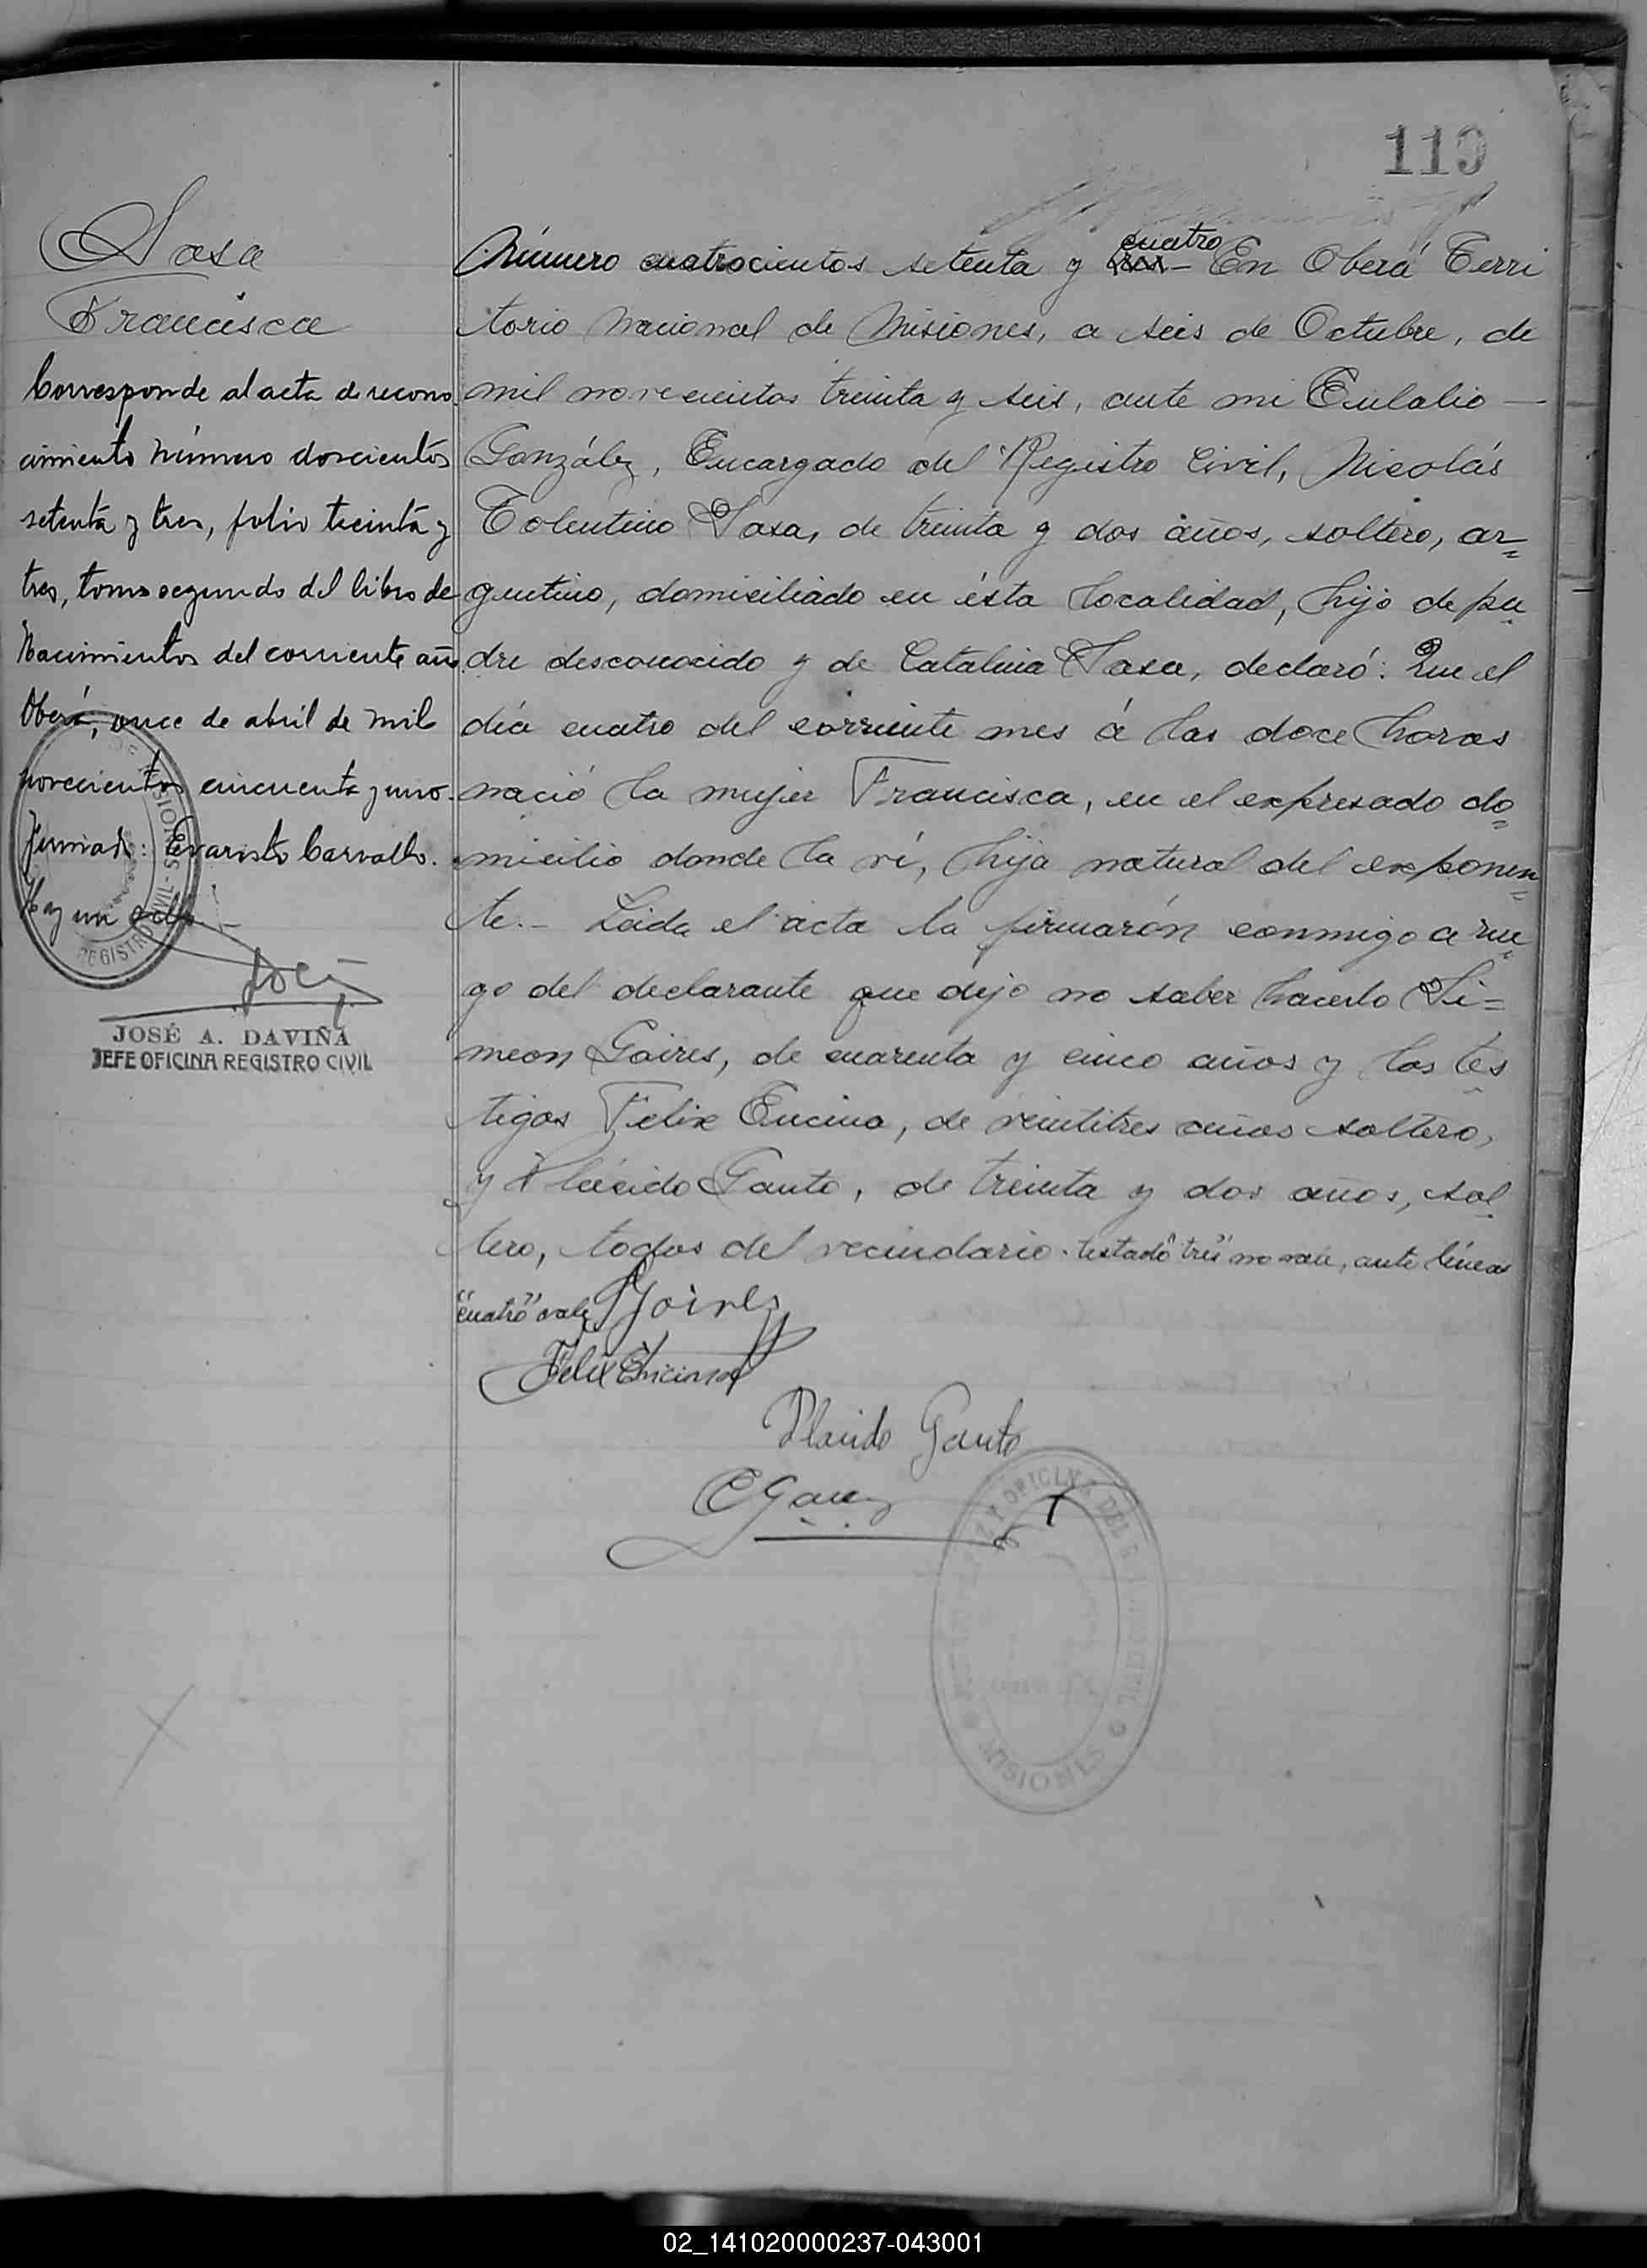 119
Sosa
Francisca
Corresponde al acta de recono
cimiento número doscientos
setenta y tres, folio treinta y
tres, tomo segundo del libro de
Nacimientos del corriente año
Oberá, once de abril de mil
novecientos cincuenta y uno.
Firmado: Evaristo Carvallo.
Hay un sello
REGISTRO CIVIL - MISIONES
JOSÉ A. DAVIÑA
JEFE OFICINA REGISTRO CIVIL
Número cuatrocientos setenta y tres cuatro - En Oberá Terri
torio Nacional de Misiones, a seis de Octubre, de
mil novecientos treinta y seis, ante mi Eulalio —
González, Encargado del Registro Civil, Nicolás
Tolentino Sosa, de treinta y dos años, soltero, ar=
gentino, domiciliado en ésta localidad, hijo de pa
dre desconocido y de Catalina Sosa, declaró: Que el
día cuatro del corriente mes á las doce horas
nació la mujer Francisca, en el expresado do=
micilio donde la ví, hija natural del exponen=
te.- Leida el acta la firmarón conmigo a rue
go del declarante que dijo no saber hacerlo Si=
meon Goires, de cuarenta y cinco años y los tes
tigos Felix Encina, de veintitres años soltero,
y Plácido Gauto, de treinta y dos años, sol
tero, todos del vecindario. testado "tres" no vale, ante líneas
"cuatro" vale
Goires
Felix Encina
Placido Gauto
OFICINA DEL
MISIONES
02_141020000237-043001